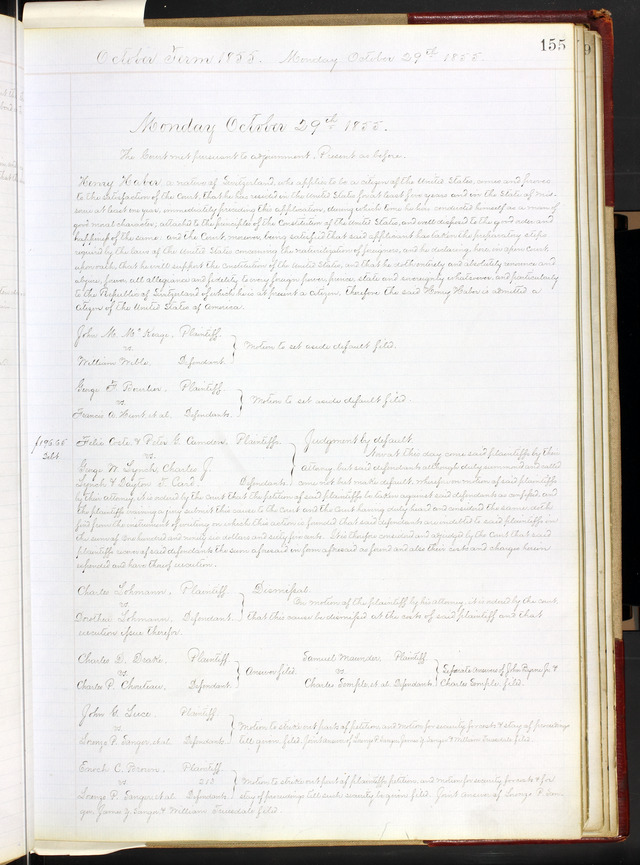 155
October Term 1855. Monday October 29th 1855.
Monday October 29th 1855.
The Court met pursuant to adjournment. Present as before.
Henry Haber a native of Switzerland, who applies to be a citizen of the United States, comes and proves
to the satisfaction of the Court, that he has resided in the United States for at least five years and in the State of Mis-
souri at least one year, immediately preceding this application, during which time he has conducted himself as a man of
good moral character, attached to the principles of the Constitution of the United States, and well disposed to the good order and
happiness of the same: and the Court moreover being satisfied that said applicant has taken the preparatory steps
required by the laws of the United States concerning the naturalization of foreigners, and he declaring here in open Court
upon oath, that he will support the Constitution of the United States, and that he doth entirely and absolutely renounce and
abjure forever all allegiance and fidelity to every foreign power, prince, state and sovereignty whatsoever and particularly
to the Republic of Switzerland of which he is at present a citizen, therefore the said Henry Haber is admitted a
citizen of the United States of America.
John M. McKeage. Plaintiff
vs.
William Wible. Defendant.
Motion to set aside default filed.
George F. Plaintiff.
vs.
Francis A. Hunt et al. Defendants.
Motion to set aside default filed.
$196.65
Debt.
Felix Coste & Peter G. Camden. Plaintiffs
vs.
George W. Lynch, Charles J.
Lynch & Dayton T. Card. Defendants.
Judgment by default.
Now at this day come said plaintiffs by their
attorney, but said defendants although duly summoned and called
come not but make default, wherefore on motion of said plaintiffs
by their attorney, it is ordered by the Court that the petition of said plaintiffs be taken against said defendants as confessed, and
the plaintiffs waiving a jury submit this cause to the Court and the Court having duly heard and considered the same, doth
find from the instrument of writing on which this action is founded that said defendants are indebted to said plaintiffs in
the sum of one hundred and ninety six dollars and sixty five cents. It is therefore considered and adjudged by the Court that said
plaintiffs recover of said defendants the sum aforesaid in form aforesaid as found and also their costs and charges herein
expended and have thereof execution.
Charles Lohmann. Plaintiff.
vs.
Dorothea Lohmann. Defendant.
Dismissal.
On motion of the plaintiff by his attorney, it is ordered by the court
that this cause be dismissed at the costs of said plaintiff and that
execution issue therefor.
Charles D. Drake. Plaintiff
vs.
Charles P. Chouteau. Defendant.
Answer filed.
Samuel Maunder. Plaintiff.
vs.
Charles Semple et al. Defendants.
Separate Answers of John Payne Jr. &
Charles Semple, filed.
John G. Plaintiff
vs.
George P. Sanger et al. Defendants.
Motion to strike out parts of petition, and motion for security for costs & stay of proceedings
till given, filed. Joint answer of George P. Sanger, James Y. Sanger & William Truesdale filed.
Enoch C. Brown. Plaintiff.
vs. 213
George P. Sanger et al. Defendants.
Motion to strike out part of plaintiffs petition, and motion for security for costs & for
stay of proceedings till such security be given, filed. Joint answer of George P. San-
ger, James Y. Sanger, & William Truesdale filed.